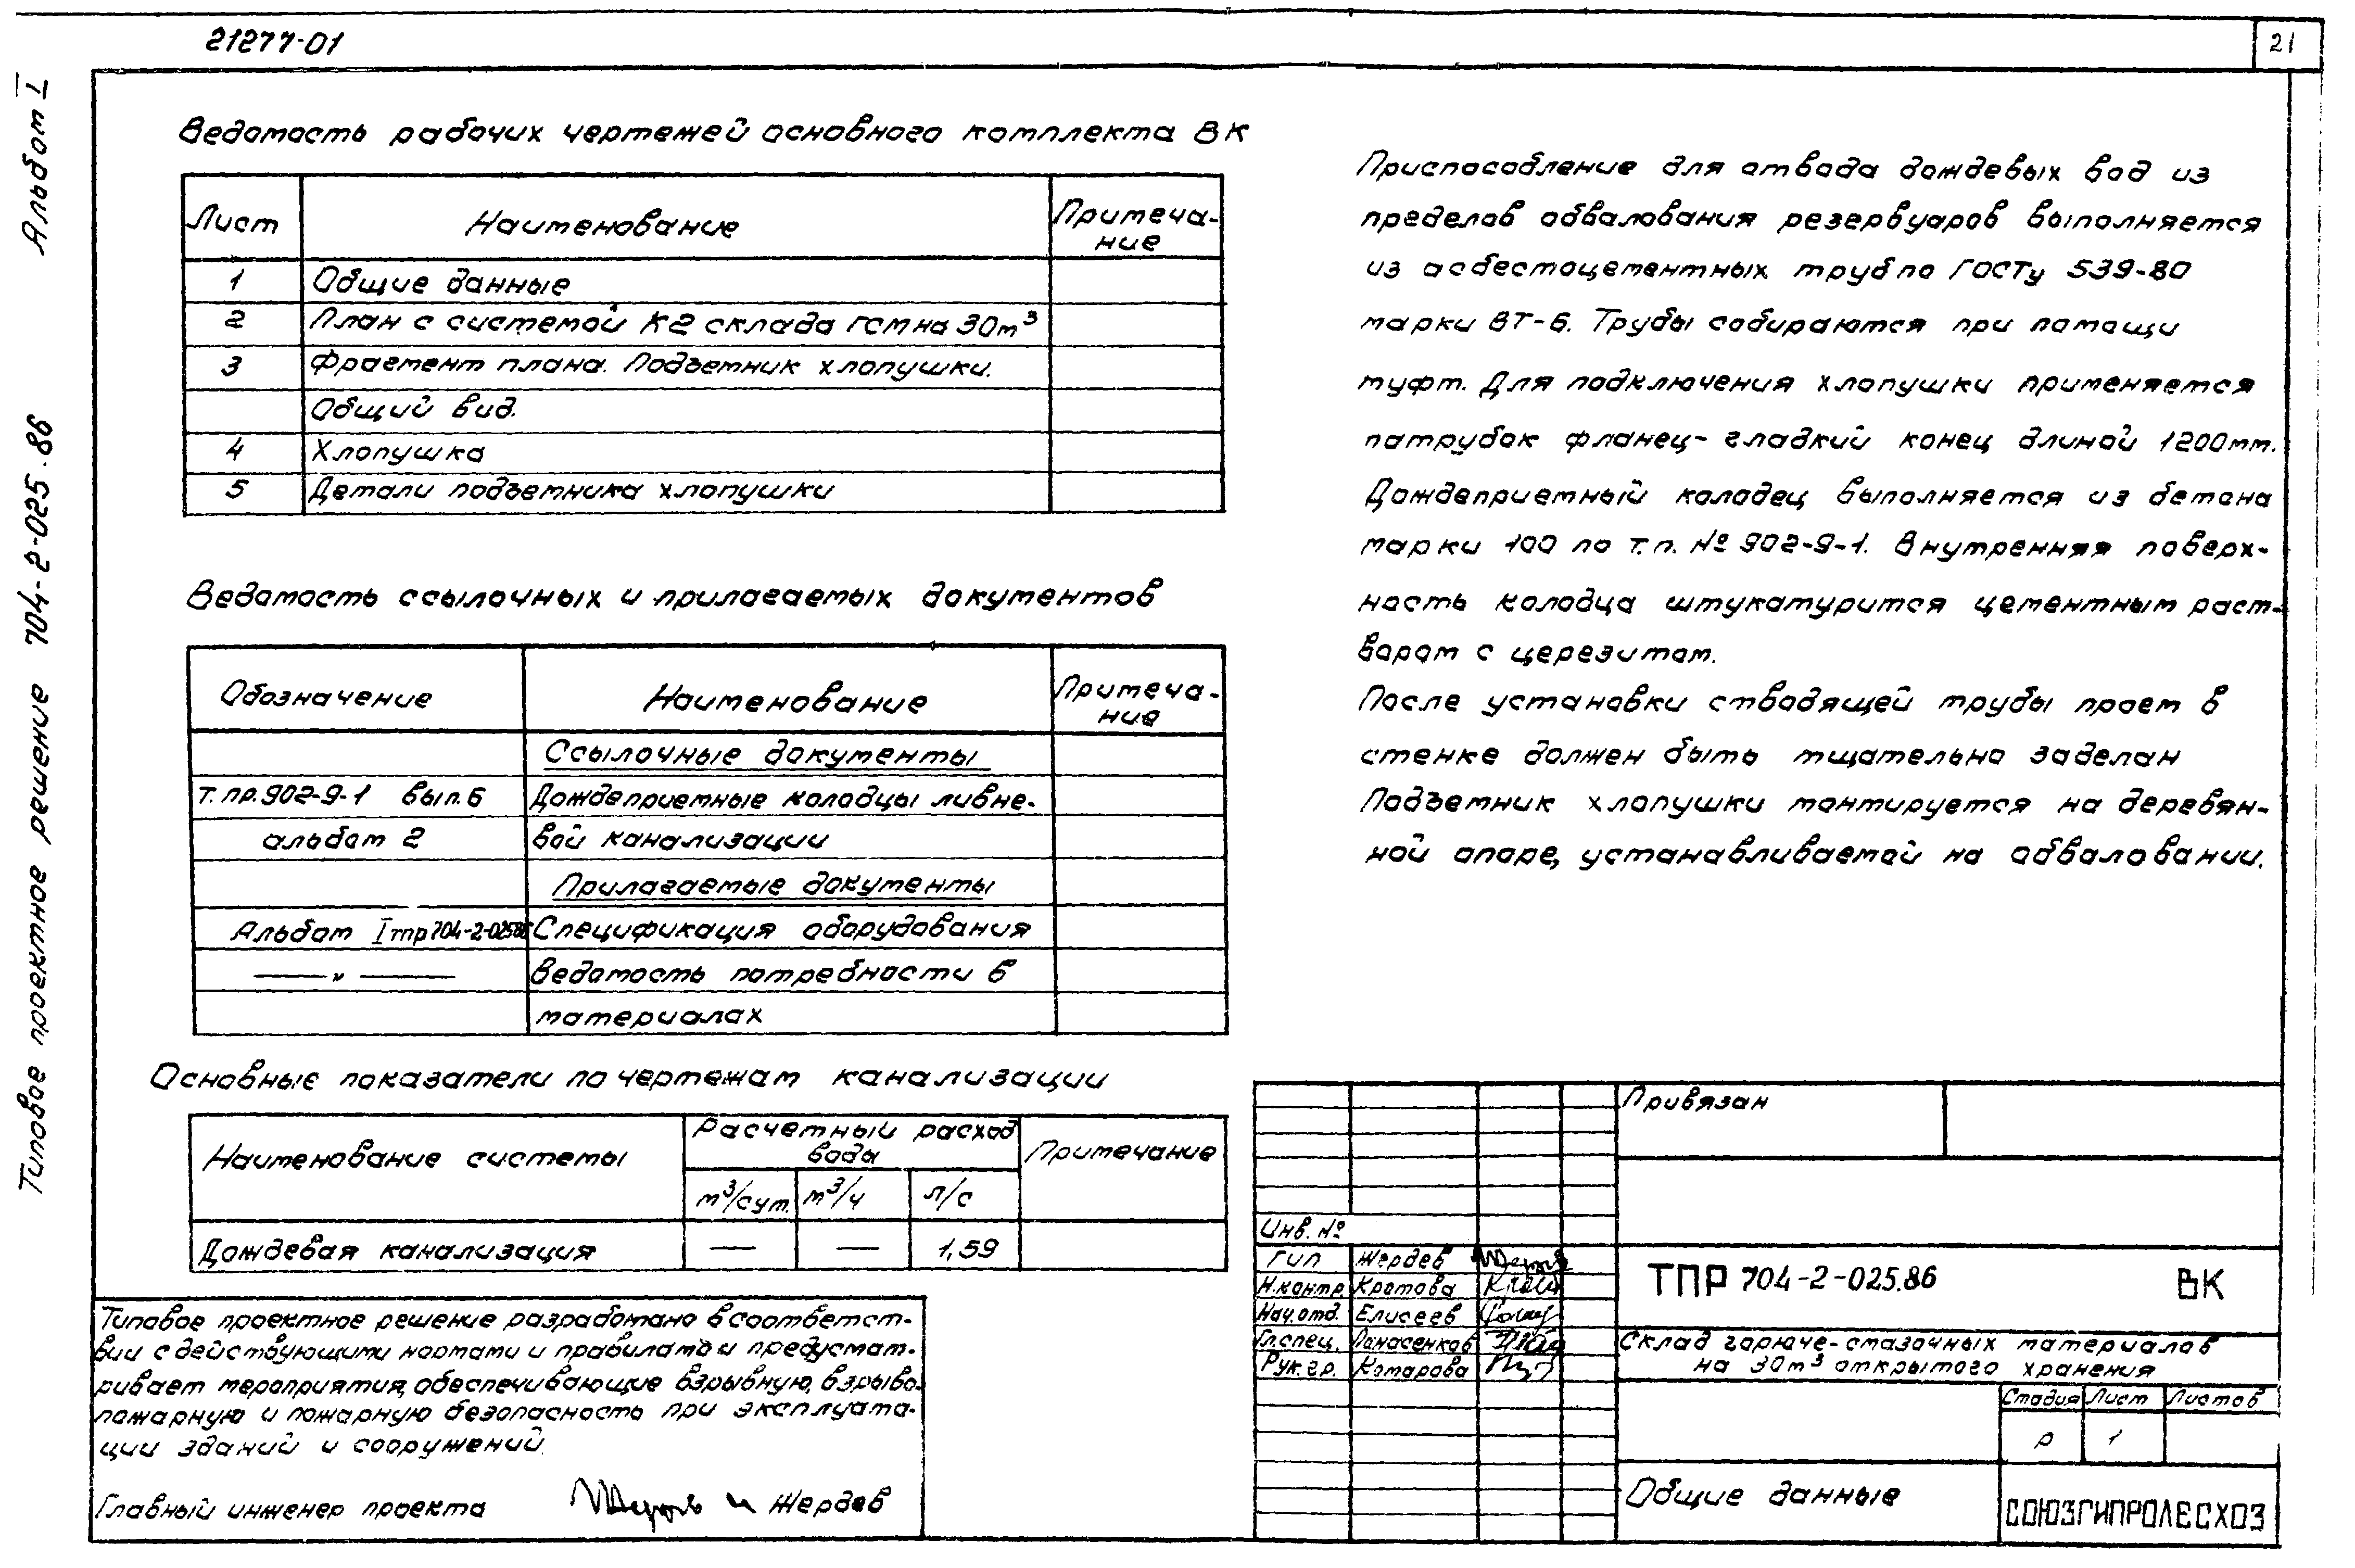 21277-01
21
Альбом I
Типовое проектное решение 704-2-025.86
Ведомость рабочих чертежей основного комплекта ВК
Лист Наименование Примеча-
ние
1 Общие данные
2 План с системой К2 склада ГСМ на 30м³
3 Фрагмент плана. Подъемник хлопушки.
Общий вид.
4 Хлопушка
5 Детали подъемника хлопушки
Ведомость ссылочных и прилагаемых документов
Обозначение Наименование Примеча-
ние
Ссылочные документы
т.пр.902-9-1 вып.6 Дождеприемные колодцы ливне-
альбом 2 вой канализации
Прилагаемые документы
Альбом I тпр 704-2-025.86 Спецификация оборудования
—"— Ведомость потребности в
материалах
Основные показатели по чертежам канализации
Наименование системы Расчетный расход
воды Примечание
м³/сут. м³/ч л/с
Дождевая канализация — — 1,59
Типовое проектное решение разработано в соответст-
вии с действующими нормами и правилами и предусмат-
ривает мероприятия, обеспечивающие взрывную, взрыво-
пожарную и пожарную безопасность при эксплуата-
ции зданий и сооружений.
Главный инженер проекта Жердев
Приспособление для отвода дождевых вод из
пределов обвалования резервуаров выполняется
из асбестоцементных труб по ГОСТу 539-80
марки ВТ-6. Трубы собираются при помощи
муфт. Для подключения хлопушки применяется
патрубок фланец-гладкий конец длиной 1200мм.
Дождеприемный колодец выполняется из бетона
марки 100 по т.п. № 902-9-1. Внутренняя поверх-
ность колодца штукатурится цементным раст-
вором с церезитом.
После установки отводящей трубы проем в
стенке должен быть тщательно заделан
Подъемник хлопушки монтируется на деревян-
ной опоре, устанавливаемой на обваловании.
Привязан
Инв. №
ГИП Жердев
Н.контр. Кротова
Нач.отд. Елисеев
Гл.спец. Панасенков
Рук.гр. Комарова
ТПР 704-2-025.86 ВК
Склад горюче-смазочных материалов
на 30м³ открытого хранения
Стадия Лист Листов
Р 1
Общие данные
СОЮЗГИПРОЛЕСХОЗ